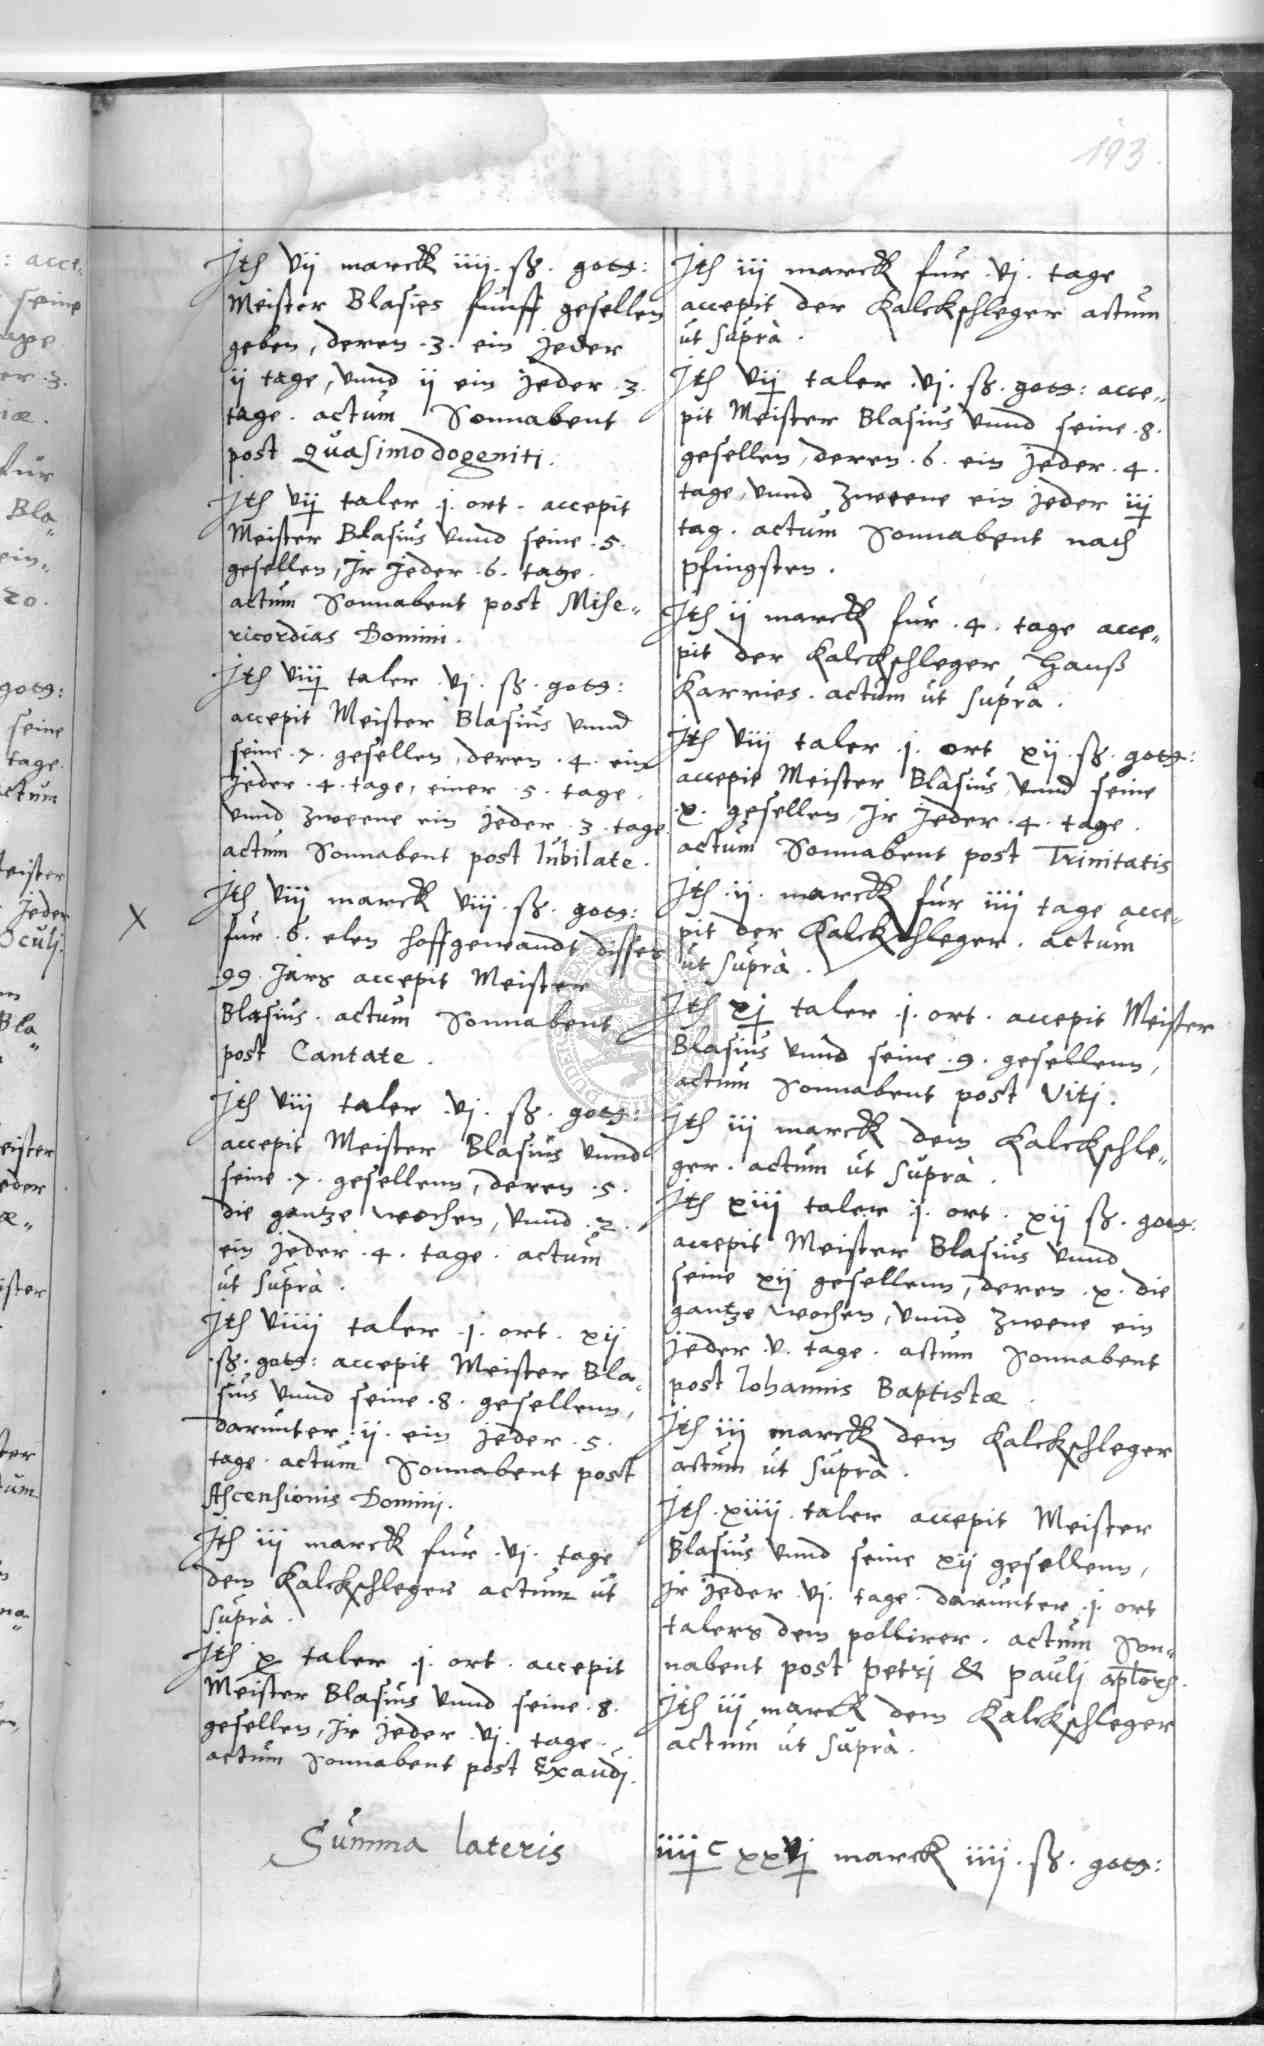 193
Jth vij marck iiij. ß. gotg:
Meister Blasies funff gesellen
geben, deren .3. ein jeder
ij tage, vnnd ij ein jeder .3.
tage. actum Sonnabent
post Quasimodogeniti.
Jth vij taler .j. ort. accepit
Meister Blasius vnnd seine .5.
gesellen, Jr jeder .6. tage.
actum Sonnabent post Mise„
ricordias Domini.
Jth viij taler .vj. ß. gotg:
accepit Meister Blasius vnnd
seine .7. gesellen, deren .4. ein
jeder .4. tage, einer .5. tage.
vnnd zweene ein jeder .3. tage
actum Sonnabent post Iubilate.
X
Jth viij marck viij. ß. gotg:
fur .6. elen hoffgewandt disses
99. Jars accepit Meister
Blasius. actum Sonnabent
post Cantate.
Jth viij taler .vj. ß. gotg:
accepit Meister Blasius vnnd
seine .7. gesellenn, deren .5.
die gantze wochen, vnnd .2.
ein jeder .4. tage. actum
ut suprà.
Jth viiij taler .j. ort. xij
.ß. gotg: accepit Meister Bla„
sius vnnd seine .8. gesellenn,
darunter .ij. ein jeder .5.
tage. actum Sonnabent post
Ascensionis Dominj.
Jth iij marck fur .vj. tage
dem Kalckschleger actum ut
suprà.
Jth x taler .j. ort. accepit
Meister Blasius vnnd seine .8.
gesellen, Jr jeder .vj. tage.
actum Sonnabent post Exaudj.
Jth iij marck fur .vj. tage
accepit der Kalckschleger actum
ut suprà.
Jth vij taler .vj. ß. gotg: acce„
pit Meister Blasius vnnd seine .8.
gesellen, deren .6. ein jeder .4.
tage, vnnd zweene ein jeder iij
tag. actum Sonnabent nach
pfingsten.
Jth ij marck fur .4. tage acce„
pit der Kalckschleger Hanß
Karries. actum ut suprà.
Jth viij taler .j. ort xij. ß. gotg:
accepit Meister Blasius vnnd seine
.x. gesellen, Jr jeder .4. tage.
actum Sonnabent post Trinitatis
Jth .ij. marck fur iiij tage acce„
pit der Kalckschleger. actum
ut suprà.
Jth xj taler .j. ort. accepit Meister
Blasius vnnd seine .9. gesellenn,
actum Sonnabent post Vitj.
Jth iij marck dem Kalckschle„
ger. actum ut suprà.
Jth xiij taler .j. ort. xij ß. gotg:
accepit Meister Blasius vnnd
seine xij gesellenn, deren .x. die
gantze wochen, vnnd zweene ein
jeder .v. tage. actum Sonnabent
post Iohannis Baptistæ.
Jth iij marck dem Kalckschleger
actum ut suprà.
Jth .xiiij. taler accepit Meister
Blasius vnnd seine xij gesellenn,
Jr jeder .vj. tage. darunter .j. ort
talers dem pollirer. actum Son„
nabent post Petrj & Paulj
Jth iij marck dem Kalckschleger
actum ut suprà.
Summa lateris iiij c xxvj marck iiij. ß. gotg: